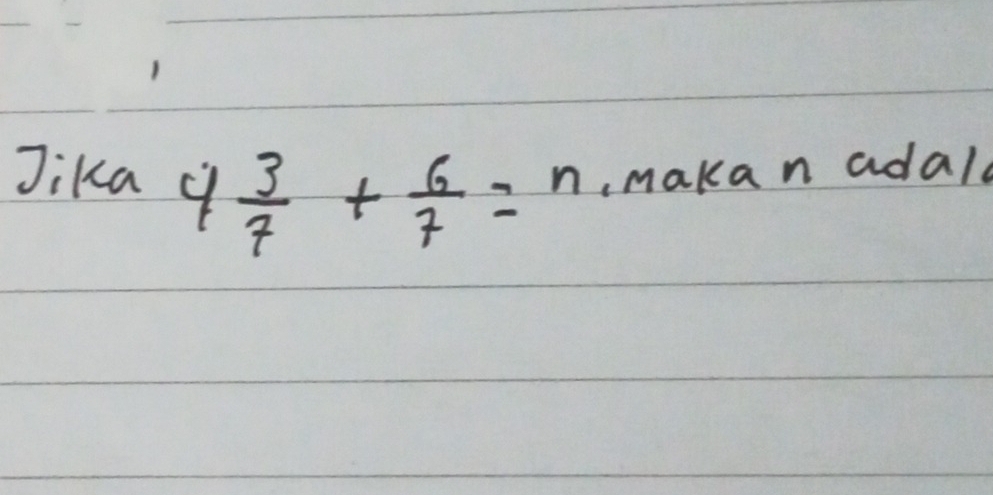 Jika 4 3/7 + 6/7 = n, maka n adala